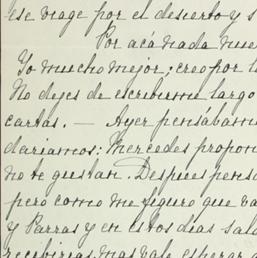 ese viage por el desierto y s
Por acá nada nue
Yo mucho mejor; creo por l
No dejes de escribirme largo
cartas. — Ayer pensábam
dariamos: Mercedes propon
no te gustan. Despues pens
pero como me figuro que va
y Parras y en estos dias sal
recibirias, mas vale esperar a